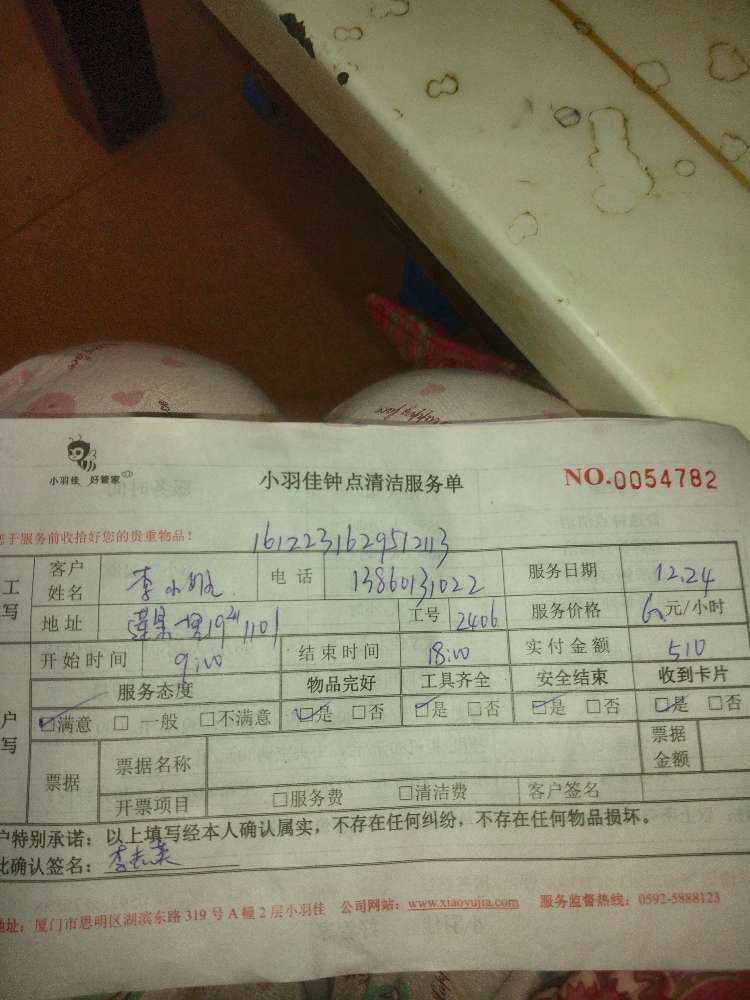 小羽佳 好管家
小羽佳钟点清洁服务单
NO.0054782
于服务前收拾好您的贵重物品!
1612231629512113
工
写
客户姓名 李小 电话 13860131022 服务日期 12.24
地址 1101 工号 2406 服务价格 元/小时
开始时间 9:00 结束时间 18:00 实付金额 510
户
写
服务态度 物品完好 工具齐全 安全结束 收到卡片
☑满意 □一般 □不满意 ☑是 □否 ☑是 □否 ☑是 □否 ☑是 □否
票据 票据名称 票据金额
开票项目 □服务费 □清洁费 客户签名
户特别承诺:以上填写经本人确认属实,不存在任何纠纷,不存在任何物品损坏。
此确认签名:李
地址:厦门市思明区湖滨东路 319 号 A 幢 2 层小羽佳 公司网站:www.xiaoyujia.com 服务监督热线:0592-5888123